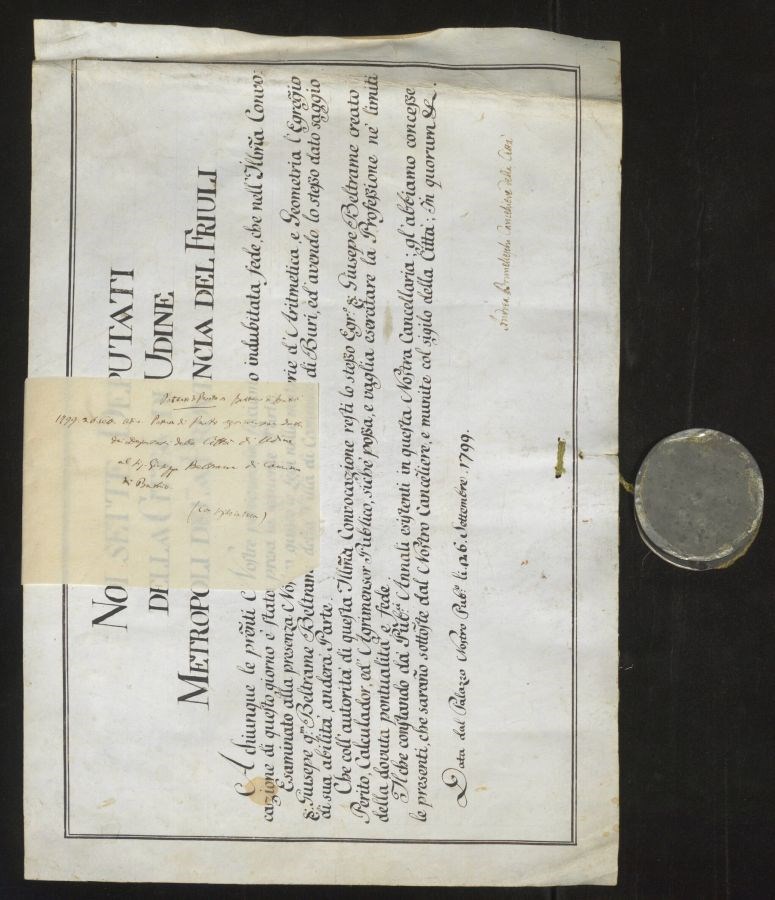 NOI SETTE DEPUTATI
DELLA CITTÀ DI UDINE
METROPOLI DELLA PROVINCIA DEL FRIULI
A chiunque le pr̃enti Nostre indubitata fede, che nell'Illm̃a Convo:
cazione di questo giorno è stato preso
Esaminato alla presenza Nostra d'Aritmetica, e Geometria l'Egregio
S.r Giusepe q.m Beltrame Beltrame di Buri, ed avendo lo stesso dato saggio
di sua abilità, anderà Parte.
Che coll'autorità di questa Illm̃a Convocazione resti lo stesso Egr.o S.r Giusepe Beltrame creato
Perito, Calculador, ed Agrimensor Publico, sichè possa, e vaglia esercitare la Professione ne' limiti
della dovuta pontualità, e fede.
Il che constando da' Pub.ci Annali esistenti in questa Nostra Cancellaria; gl'abbiamo concesse
le presenti, che sarano sottoste dal Nostro Canceliere, e munite col sigilo della Città; In quorum &.
Data dal Palazzo Nostro Pub.o li 26. Settembre. 1799.
Canceliere della Città
1799. 26
della Città di Udine
al Sig. Giuseppe Beltrame di
di Buttrio